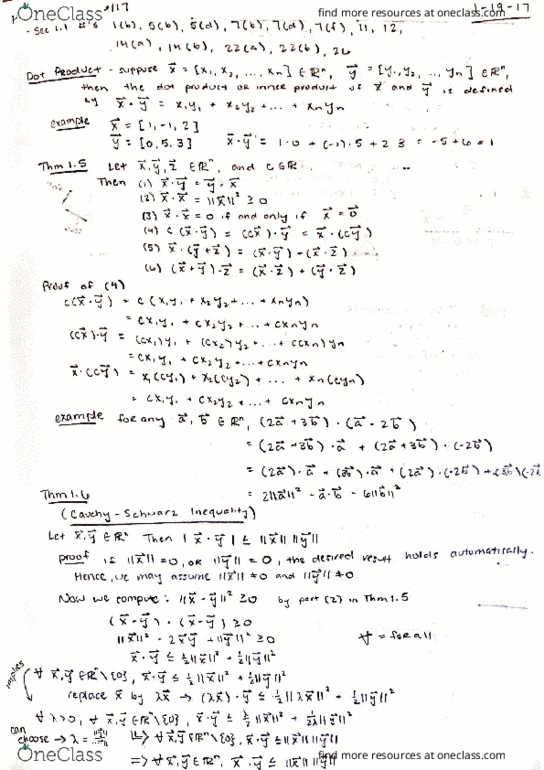 OneClass
find more resources at oneclass.com
#117
1-19-17
- Sec 1.1 #'s 1(b), 5(b), 5(d), 7(b), 7(d), 7(f), 11, 12,
14(a), 14(b), 22(a), 22(b), 26
Dot Product - suppose x⃗ = [x₁, x₂, ..., xₙ] ∈ ℝⁿ, y⃗ = [y₁, y₂, ..., yₙ] ∈ ℝⁿ,
then the dot product or inner product of x⃗ and y⃗ is defined
by x⃗·y⃗ = x₁y₁ + x₂y₂ + ... + xₙyₙ
example x⃗ = [1, -1, 2]
y⃗ = [0, 5, 3] x⃗·y⃗ = 1·0 + (-1)·5 + 2·3 = -5+6 = 1
Thm 1.5 Let x⃗, y⃗, z⃗ ∈ ℝⁿ, and c ∈ ℝ.
Then (1) x⃗·y⃗ = y⃗·x⃗
(2) x⃗·x⃗ = ||x⃗||² ≥ 0
(3) x⃗·x⃗ = 0 if and only if x⃗ = 0⃗
(4) c(x⃗·y⃗) = (cx⃗)·y⃗ = x⃗·(cy⃗)
(5) x⃗·(y⃗+z⃗) = (x⃗·y⃗) + (x⃗·z⃗)
(6) (x⃗+y⃗)·z⃗ = (x⃗·z⃗) + (y⃗·z⃗)
Proof of (4)
c(x⃗·y⃗) = c(x₁y₁ + x₂y₂ + ... + xₙyₙ)
= cx₁y₁ + cx₂y₂ + ... + cxₙyₙ
(cx⃗)·y⃗ = (cx₁)y₁ + (cx₂)y₂ + ... + (cxₙ)yₙ
= cx₁y₁ + cx₂y₂ + ... + cxₙyₙ
x⃗·(cy⃗) = x₁(cy₁) + x₂(cy₂) + ... + xₙ(cyₙ)
= cx₁y₁ + cx₂y₂ + ... + cxₙyₙ
example for any a⃗, b⃗ ∈ ℝⁿ, (2a⃗ + 3b⃗)·(a⃗ - 2b⃗)
= (2a⃗ + 3b⃗)·a⃗ + (2a⃗ + 3b⃗)·(-2b⃗)
= (2a⃗)·a⃗ + (3b⃗)·a⃗ + (2a⃗)·(-2b⃗) + (3b⃗)·(-2b⃗
= 2||a⃗||² - a⃗·b⃗ - 6||b⃗||²
Thm 1.6
(Cauchy-Schwarz Inequality)
Let x⃗, y⃗ ∈ ℝⁿ Then |x⃗·y⃗| ≤ ||x⃗|| ||y⃗||
proof if ||x⃗|| = 0, or ||y⃗|| = 0, the desired result holds automatically.
Hence, we may assume ||x⃗|| ≠ 0 and ||y⃗|| ≠ 0
Now we compute: ||x⃗ - y⃗||² ≥ 0 by part (2) in Thm 1.5
(x⃗-y⃗)·(x⃗-y⃗) ≥ 0
||x⃗||² - 2x⃗y⃗ + ||y⃗||² ≥ 0 ∀ = for all
x⃗·y⃗ ≤ ½||x⃗||² + ½||y⃗||²
implies ∀ x⃗, y⃗ ∈ ℝⁿ\{0}, x⃗·y⃗ ≤ ½||x⃗||² + ½||y⃗||²
replace x⃗ by λx⃗ → (λx⃗)·y⃗ ≤ ½||λx⃗||² + ½||y⃗||²
∀ λ>0, ∀ x⃗, y⃗ ∈ ℝⁿ\{0}, x⃗·y⃗ ≤ λ/2 ||x⃗||² + 1/2λ ||y⃗||²
can choose → λ = ||y⃗||/||x⃗|| ⇒ ∀ x⃗, y⃗ ∈ ℝⁿ\{0}, x⃗·y⃗ ≤ ||x⃗|| ||y⃗||
⇒ ∀ x⃗, y⃗ ∈ ℝⁿ, x⃗·y⃗ ≤ ||x⃗|| ||y⃗||
OneClass
find more resources at oneclass.com